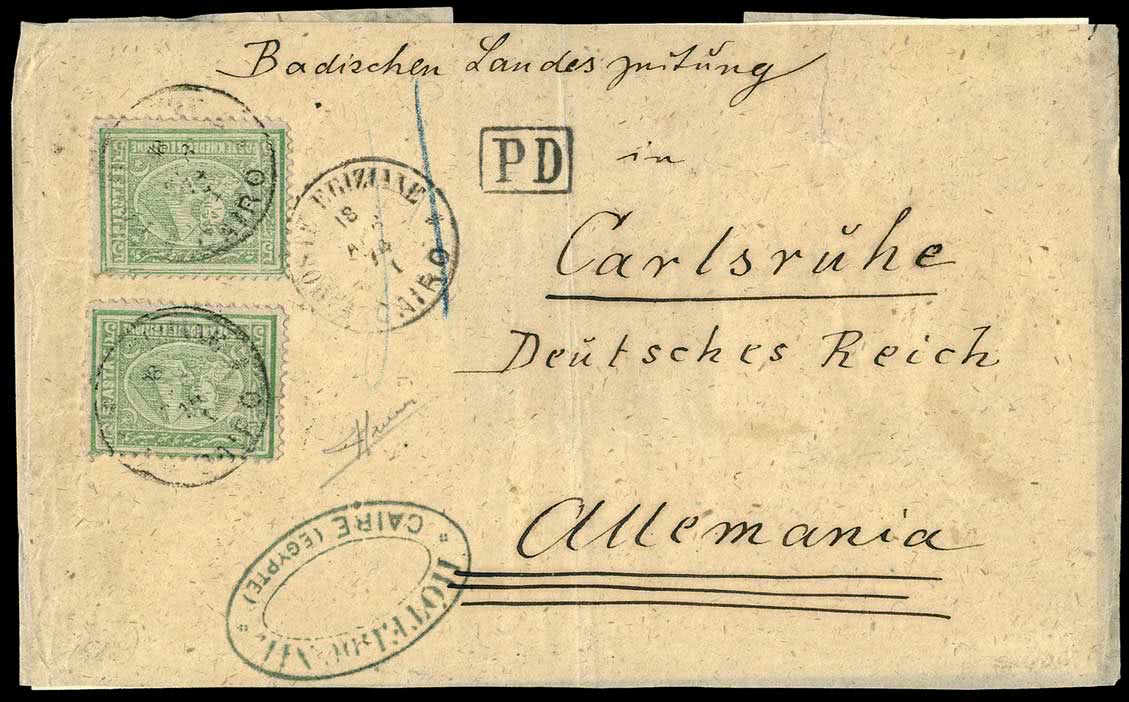 Badischen Landeszeitung
PD
in
POSTE EGIZIANE
18
74
CAIRO
Carlsrŭhe
Deŭtsches Reich
Allemania
CAIRO
CAIRO
HÔTEL DU NIL
CAIRE (EGYPTE)